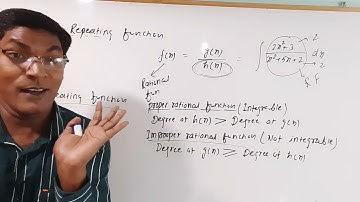 Repeating function
f(x) = g(x) / h(x) = ∫ 2x²+3 / x²+5x+2 dx
2
2
Rational
fun
eating function
proper rational function (Integrable)
Degree of h(x) > Degree of g(x)
Improper rational function (Not integrable)
Degree of g(x) ⩾ Degree of h(x)